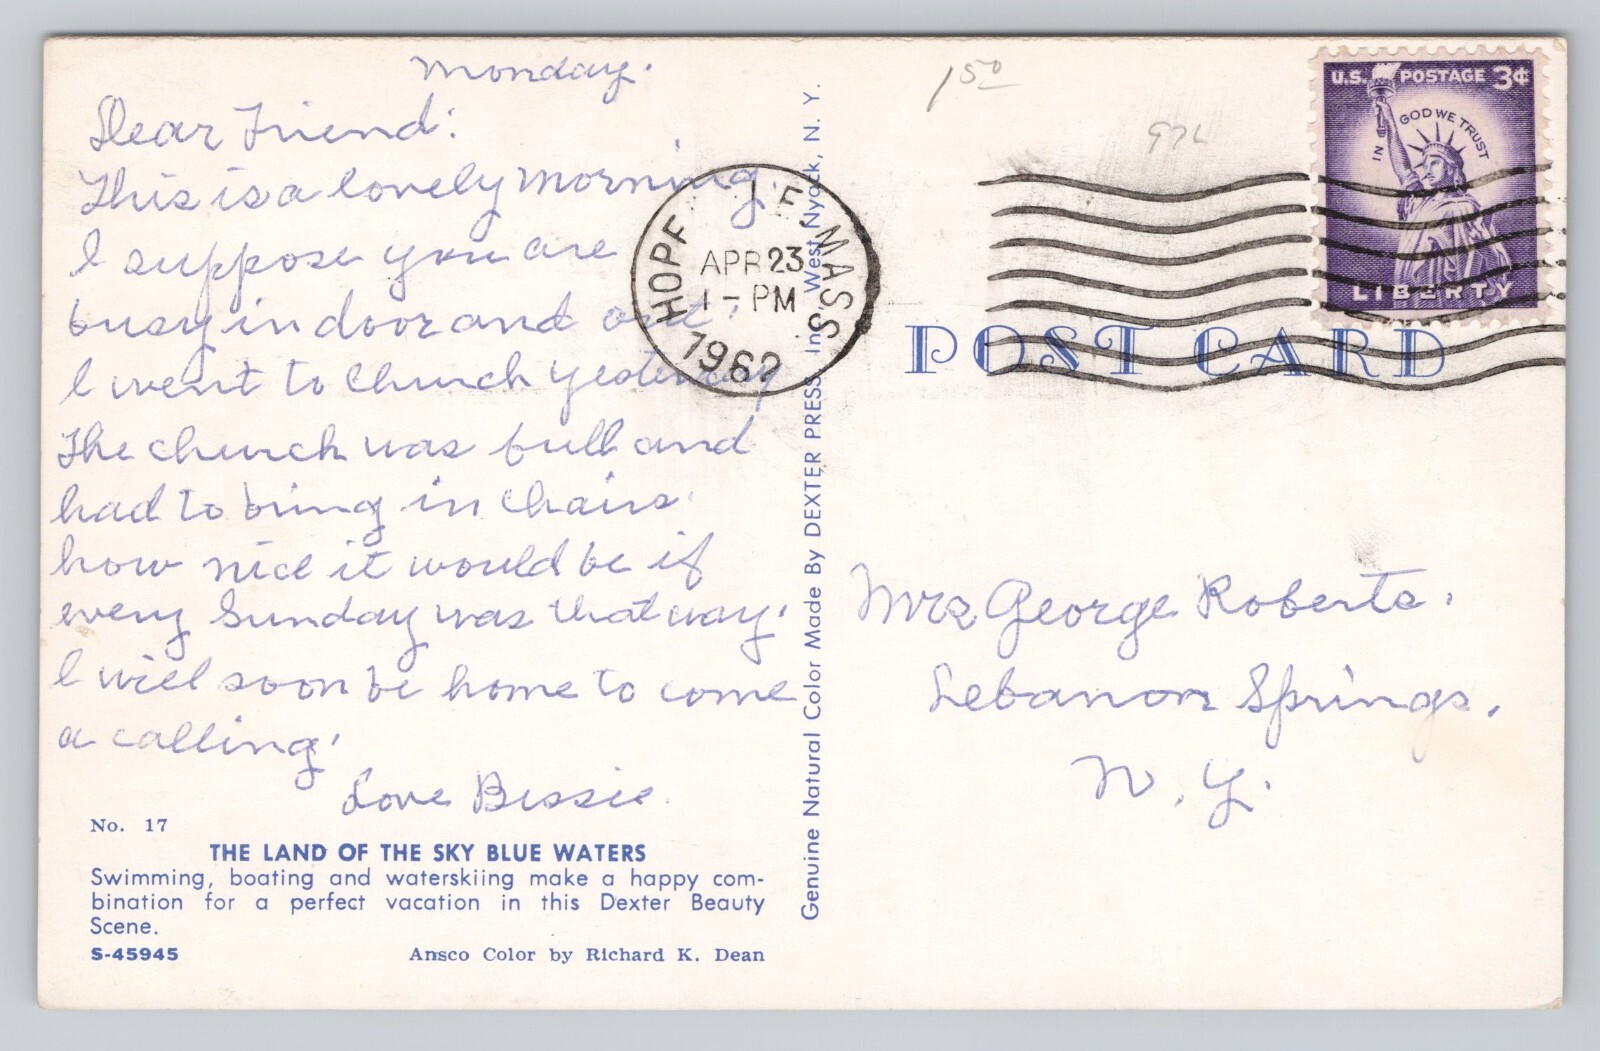 Monday.
Dear Friend:
This is a lovely morning.
I suppose you are
busy in door and out.
I went to Church yesterday
The church was full and
had to bring in Chairs.
how nice it would be if
every Sunday was that way.
I will soon be home to come
a calling.
Love Bessie.
No. 17
THE LAND OF THE SKY BLUE WATERS
Swimming, boating and waterskiing make a happy com-
bination for a perfect vacation in this Dexter Beauty
Scene.
S-45945 Ansco Color by Richard K. Dean
Genuine Natural Color Made By DEXTER PRESS, Inc. West Nyack, N. Y.
HOPE MASS
APR 23
1 - PM
1962
1 50
U.S. POSTAGE 3¢
IN GOD WE TRUST
LIBERTY
POST CARD
Mrs George Roberts.
Lebanon Springs.
N. Y.